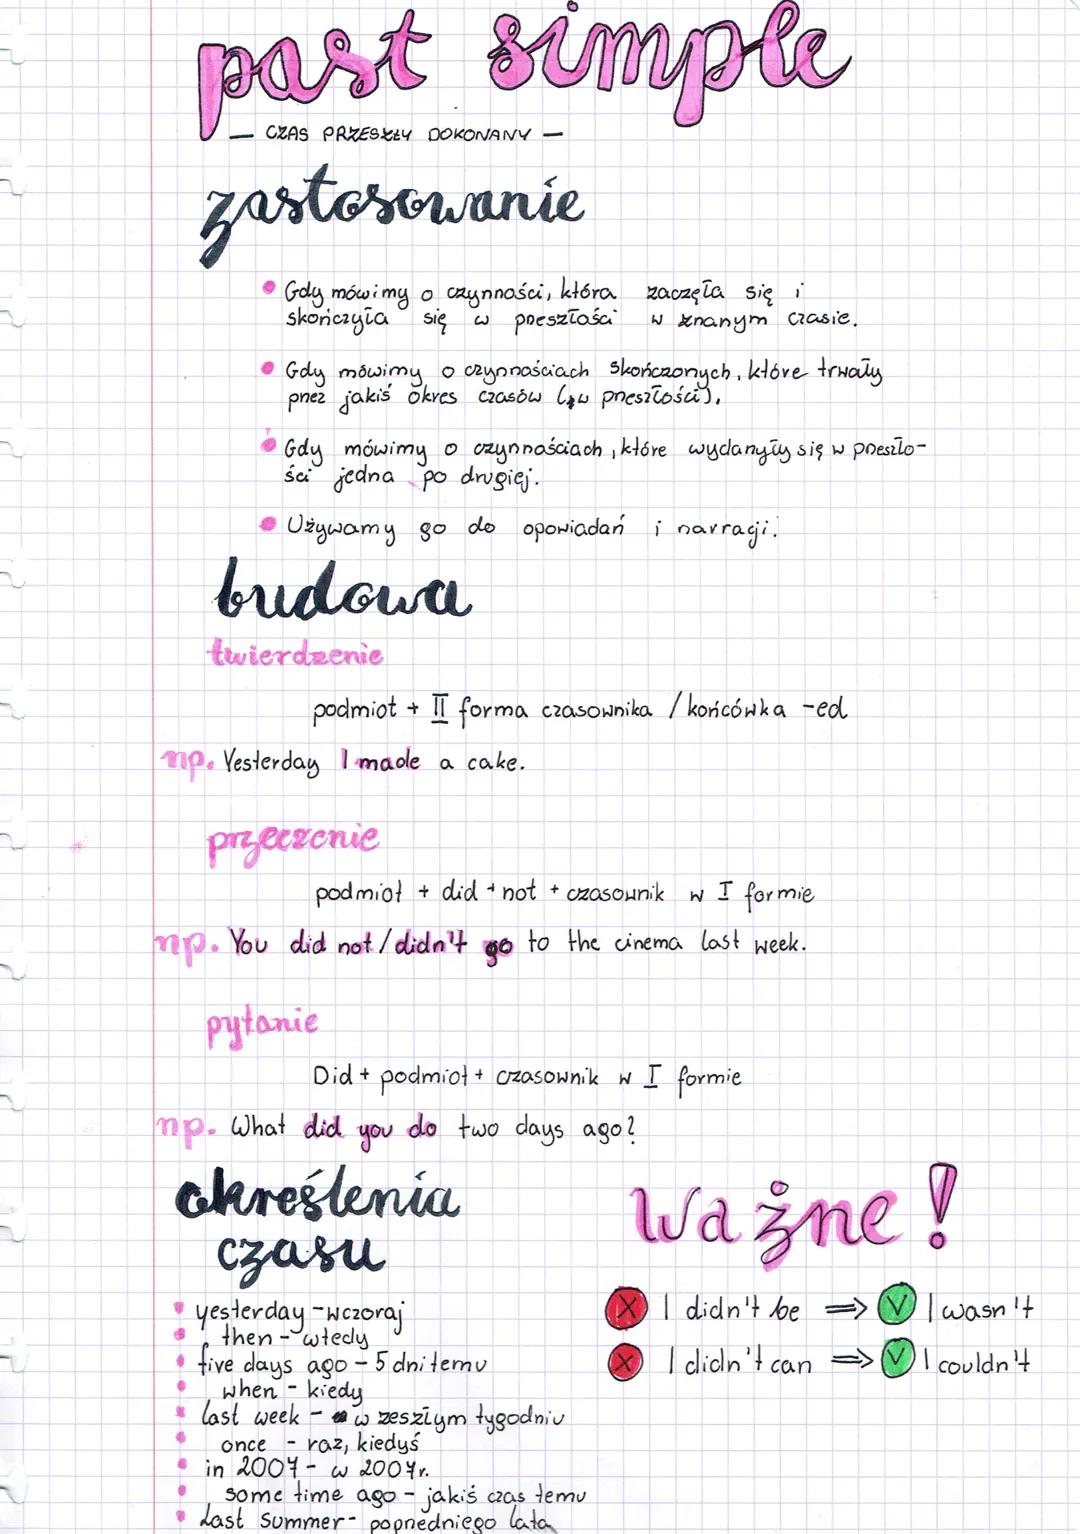 past simple
— CZAS PRZESZŁY DOKONANY —
zastosowanie
• Gdy mówimy o czynności, która zaczęła się i
skończyła się w przeszłości w znanym czasie.
• Gdy mówimy o czynnościach skończonych, które trwały
przez jakiś okres czasów (w przeszłości).
• Gdy mówimy o czynnościach, które wydarzyły się w przeszło-
ści jedna po drugiej.
• Używamy go do opowiadań i narracji.
budowa
twierdzenie
podmiot + II forma czasownika / końcówka -ed
np. Yesterday I made a cake.
przeczenie
podmiot + did + not + czasownik w I formie
np. You did not / didn't go to the cinema last week.
pytanie
Did + podmiot + czasownik w I formie
np. What did you do two days ago?
określenia
czasu
• yesterday - wczoraj
• then - wtedy
• five days ago - 5 dni temu
• when - kiedy
• last week - w zeszłym tygodniu
• once - raz, kiedyś
• in 2007 - w 2007r.
• some time ago - jakiś czas temu
• Last summer - poprzedniego lata
ważne!
X I didn't be => V I wasn't
X I didn't can => V I couldn't